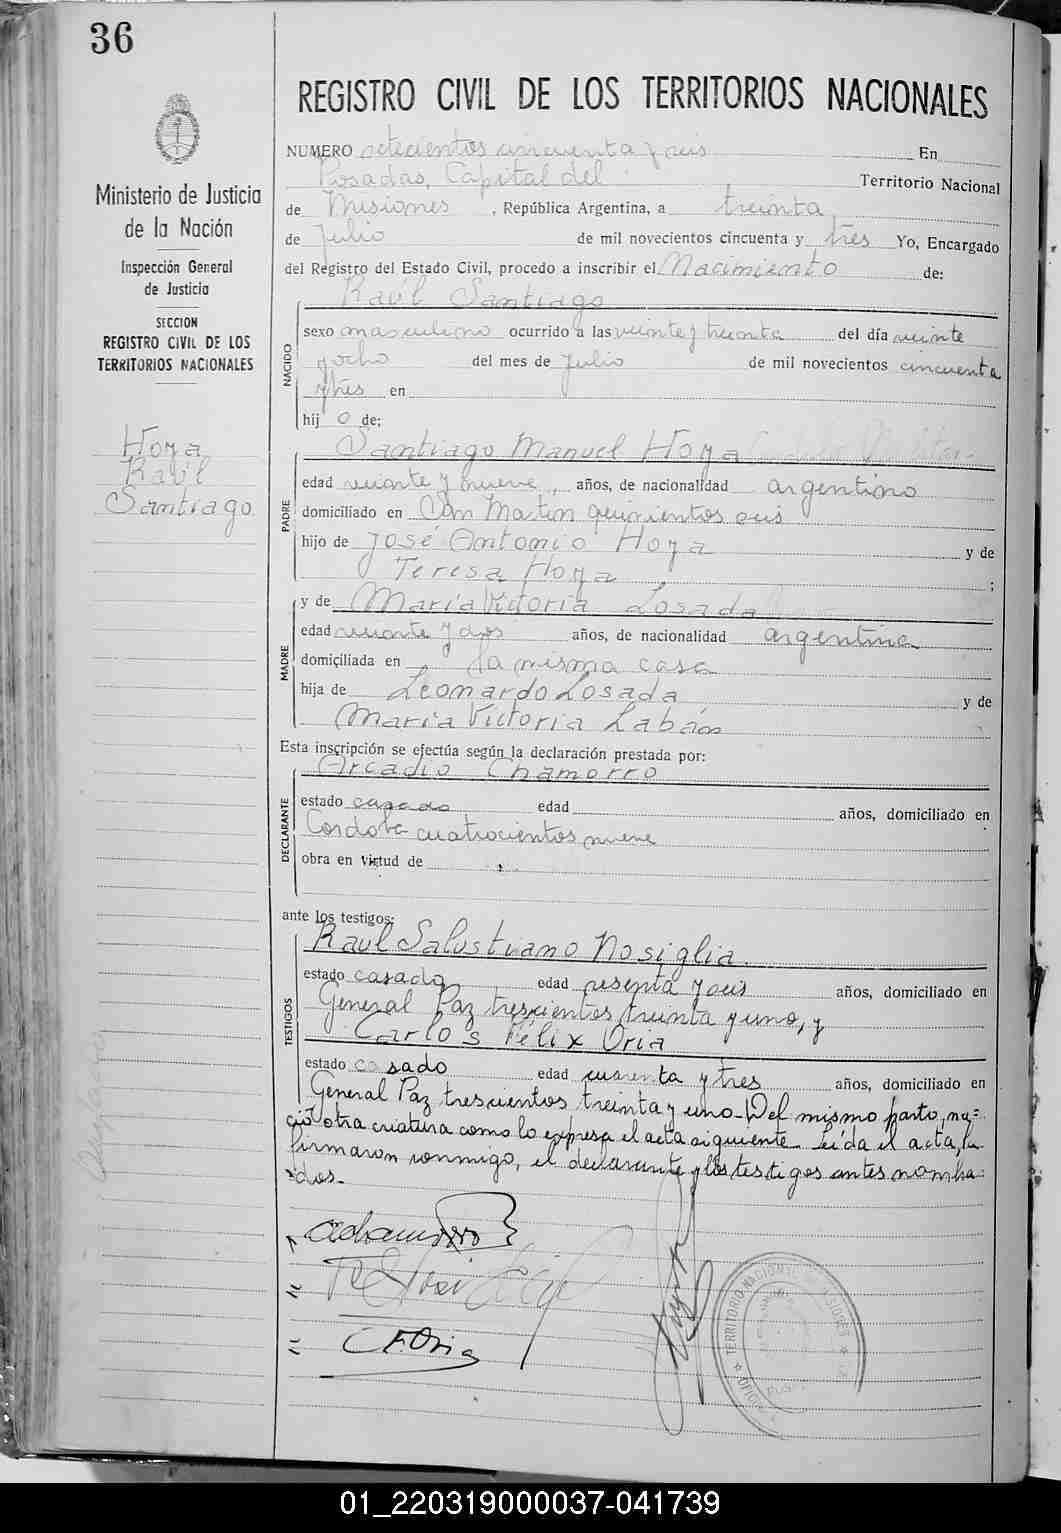 36
REGISTRO CIVIL DE LOS TERRITORIOS NACIONALES
Ministerio de Justicia
de la Nación
Inspección General
de Justicia
SECCION
REGISTRO CIVIL DE LOS
TERRITORIOS NACIONALES
Hoya
Raúl
Santiago
NUMERO setecientos cincuenta y seis En
Posadas, Capital del Territorio Nacional
de Misiones, República Argentina, a treinta
de Julio de mil novecientos cincuenta y tres Yo, Encargado
del Registro del Estado Civil, procedo a inscribir el Nacimiento de:
NACIDO
Raúl Santiago
sexo masculino ocurrido a las veinte y treinta del día veinte
y ocho del mes de Julio de mil novecientos cincuenta
y tres en
hijo de:
PADRE
Santiago Manuel Hoya
edad veinte y nueve, años, de nacionalidad argentino
domiciliado en San Martin quinientos seis
hijo de José Antonio Hoya y de
Teresa Hoya ;
MADRE
y de María Victoria Losada
edad veinte y dos años, de nacionalidad argentina
domiciliada en la misma casa
hija de Leonardo Losada y de
María Victoria Labán
Esta inscripción se efectúa según la declaración prestada por:
DECLARANTE
Arcadio Chamorro
estado casado edad años, domiciliado en
Cordoba cuatrocientos nueve
obra en virtud de
ante los testigos:
TESTIGOS
Raul Salustiano Nosiglia.
estado casado edad sesenta y seis años, domiciliado en
General Paz trescientos treinta y uno, y
Carlos Félix Oria
estado casado edad cuarenta y tres años, domiciliado en
General Paz trescientos treinta y uno - Del mismo parto, na=
ció otra criatura como lo expresa el acta siguiente. Leída el acta, la
firmaron conmigo, el declarante y los testigos antes nombra=
dos.-
AChamorro
CFOria
TERRITORIO NACIONAL
01_220319000037-041739